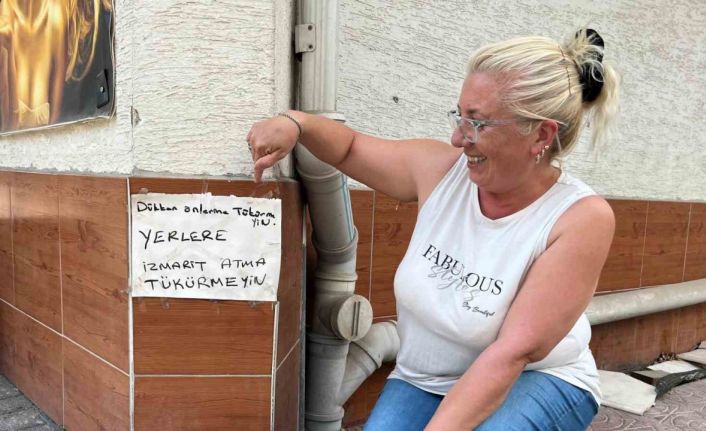 Dükkan önlerine Tükürme
yin.
YERLERE
izmarit ATMA
TÜKÜRMEYİN
FABULOUS
styles